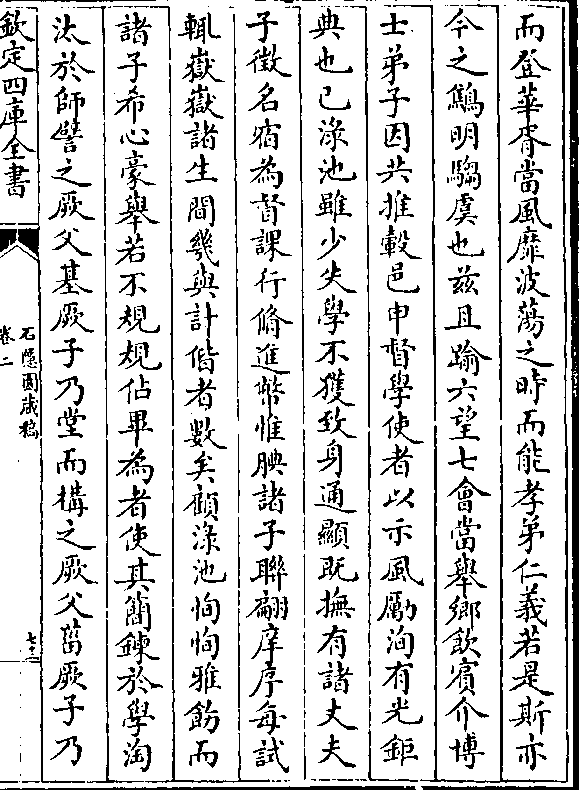 而登華胥當風靡波蕩之時而能孝弟仁義若是斯亦
今之鷦明騶虞也兹且踰六望七會當舉鄉飲賓介博
士弟子因共推轂邑申督學使者以示風勵洵有光鉅
典也已淥池雖少失學不獲致身通顯既撫有諸丈夫
子徵名宿為督課行脩進幣惟腆諸子聯翩庠序每試
輒嶽嶽諸生間幾與計偕者數矣顧淥池恂恂雅飭而
諸子希心豪舉若不規規佔畢為者使其簡鍊於學淘
汰於師譬之厥父基厥子乃堂而構之厥父菑厥子乃
欽定四庫全書
石隱園藏稿
卷二
七十三